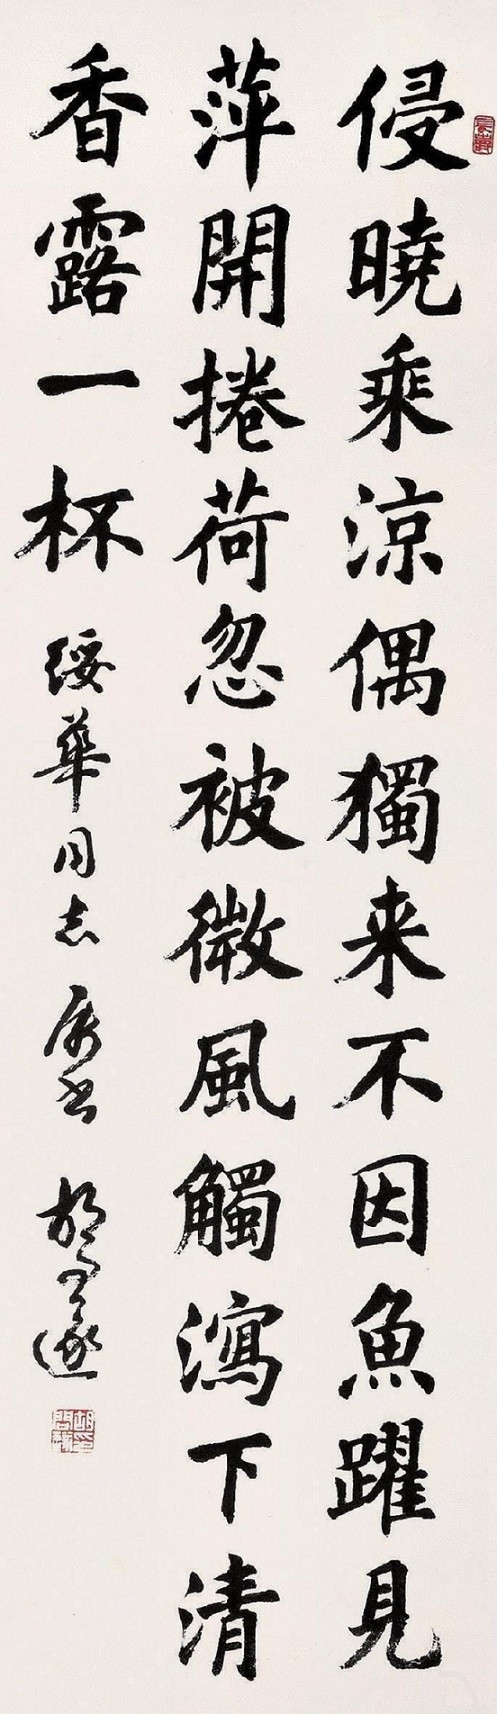 侵曉乘涼偶獨来不因魚躍見
萍開捲荷忽被微風觸瀉下清
香露一杯
绥華同志 属书 胡问遂